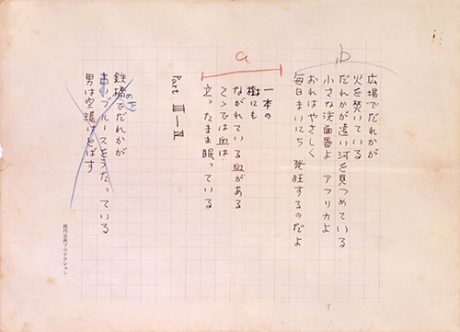 b
広場でだれかが
火を焚いている
だれかが遠い河を見つめている
小さな洗面器よ アフリカよ
おれはやさしく
毎日まいにち 発狂するのだよ
a
一本の
樹にも
ながれている血がある
そこでは血は
立ったまま眠っている
Part Ⅲ－Ⅱ
鉄橋でだれかが
ブルースをうたっている
男は空罐けとばす